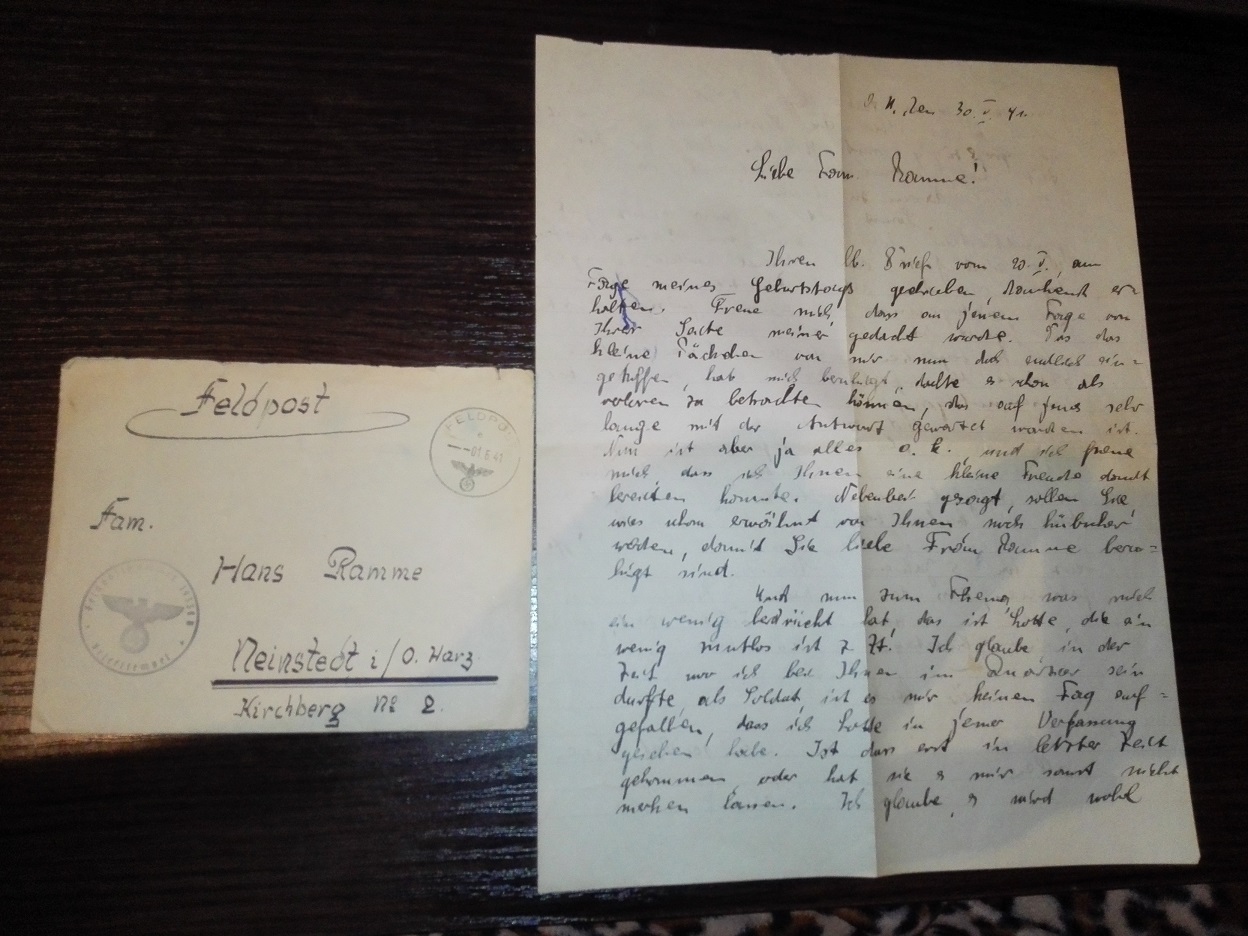 Feldpost
FELDPO
-01.6.41
Fam.
Hans Ramme
Neinstedt i/O. Harz
Kirchberg № 2.
den 30.V.41.
Liebe Fam. Ramme!
Ihren lb. Brief vom 20.V., am
Tage meines Geburtstags geschrieben, dankend er-
halten. Freue mich, dass an jenem Tage von
Ihrer Seite meiner gedacht wurde. Das das
kleine Päckchen von mir nun doch endlich ein-
getroffen, hat mich beruhigt, dachte es schon als
verloren zu betrachten können, das auf jenes sehr
lange mit der Antwort gewartet worden ist.
Nun ist aber ja alles o. k., und ich freue
mich, dass ich Ihnen eine kleine Freude damit
bereiten konnte. Nebenbei gesagt, sollen Sie,
wie schon erwähnt von Ihnen noch hübscher
werden, damit Sie liebe Frau Ramme beru=
higt sind.
Und nun zum Thema, was mich
ein wenig bedrückt hat, das ist Lotte, die ein
wenig mutlos ist z. Zt. Ich glaube in der
Zeit wo ich bei Ihnen im Quartier sein
durfte, als Soldat, ist es mir keinen Tag auf=
gefallen, dass ich Lotte in jener Verfassung
gesehen habe. Ist dass erst in letzter Zeit
gekommen, oder hat sie es mir sonst nicht
merken lassen. Ich glaube, es wird wohl